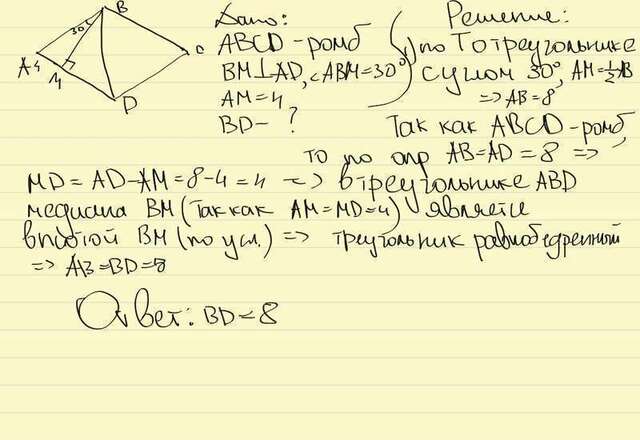 B
30°
A
4
M
D
C
Дано:
ABCD - ромб
BM⊥AD, <ABM=30°
AM=4
BD - ?
Решение:
по Т о треугольнике
с углом 30°, AM=½AB
=> AB=8
Так как ABCD - ромб,
то по опр AB=AD=8 =>
MD=AD-AM=8-4=4 => в треугольнике ABD
медиана BM (так как AM=MD=4) является
высотой BM (по усл.) => треугольник равнобедренный
=> AB=BD=8
Ответ: BD=8